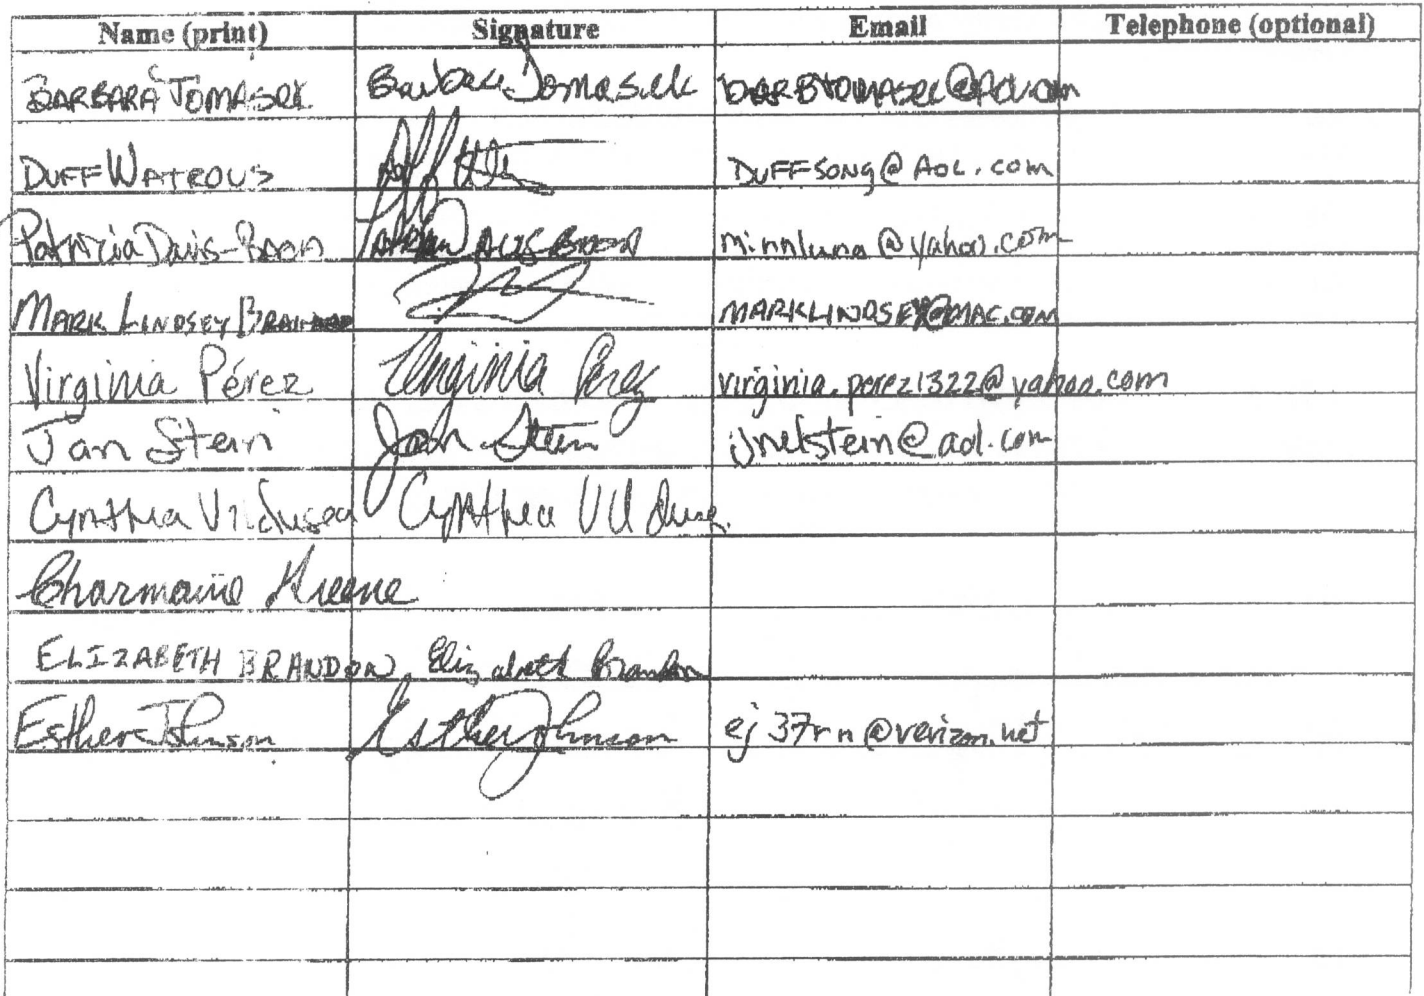 Name (print) Signature Email Telephone (optional)
BARBARA TOMASEK Barbara Tomasek BARBTOMASEK@AOL.COM
DUFF WATROUS DUFFSONG@AOL.COM
Patricia Davis- minnluna@yahoo.com
MARK LINDSEY MARKLINDSEY@MAC.COM
Virginia Pérez Virginia Perez virginia.perez1322@yahoo.com
Jan Stein Jan Stein jnelstein@aol.com
Cynthia Cynthia
Charmaine Greene
ELIZABETH BRANDON, Elizabeth Brandon
Esther Johnson Esther Johnson ej37rn@verizon.net